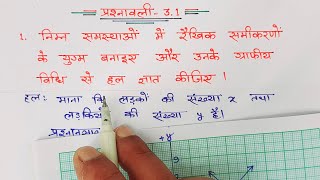 प्रश्नावली - 3.1
1. निम्न समस्याओं में रैखिक समीकरणों
के युग्म बनाइए और उनके ग्राफीय
विधि से हल ज्ञात कीजिए ।
हल: माना कि लड़कों की संख्या x तथा
की संख्या y है।
+y
9